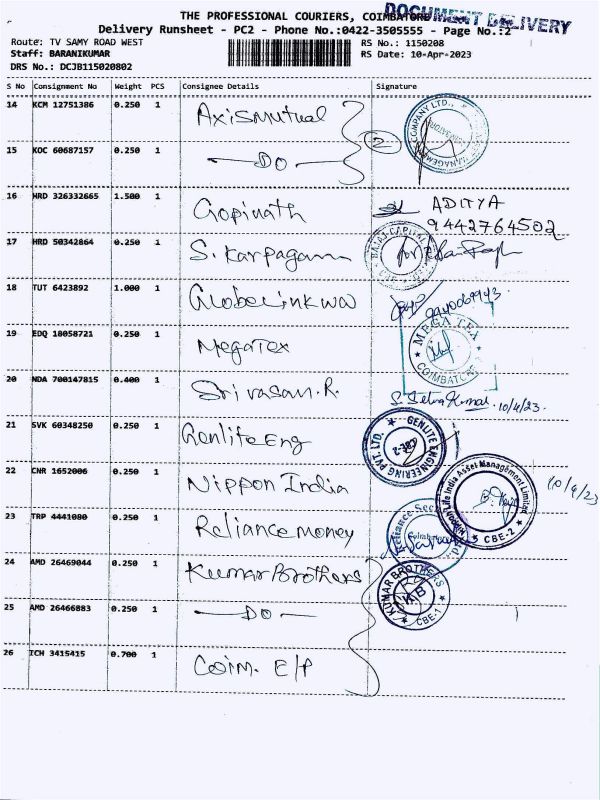 THE PROFESSIONAL COURIERS, COIMBATORE
DOCUMENT DELIVERY
Delivery Runsheet - PC2 - Phone No.:0422-3505555 - Page No.:2
Route: TV SAMY ROAD WEST
RS No.: 1150208
Staff: BARANIKUMAR
RS Date: 10-Apr-2023
DRS No.: DCJB115020802
S No Consignment No Weight PCS Consignee Details Signature
14 KCM 12751386 0.250 1 Axis Mutual
2
15 KOC 60687157 0.250 1 DO
16 HRD 326332665 1.500 1 Gopinath ADITYA
9442764502
17 HRD 50342864 0.250 1 S. Karpagam BAJAJ CAPITAL for
18 TUT 6423892 1.000 1 Globe Link WW
19 EDQ 18058721 0.250 1 MegaTex MEGA TEX COIMBATORE
20 NDA 700147815 0.400 1 Srivasan.R. S. Selva Kumar 10/4/23.
21 SVK 60348250 0.250 1 Genlite Eng GENLITE ENGINEERING PVT. LTD. CBE-2
22 CNR 1652006 0.250 1 Nippon India Nippon Life India Asset Management Limited CBE-2 10/4/23
23 TRP 4441080 0.250 1 Reliance Money Reliance Coimbatore
24 AMD 26469044 0.250 1 Kumar Brothers KUMAR BROTHERS KB CBE-1
25 AMD 26466883 0.250 1 DO
26 ICH 3415415 0.700 1 Coim. E/P